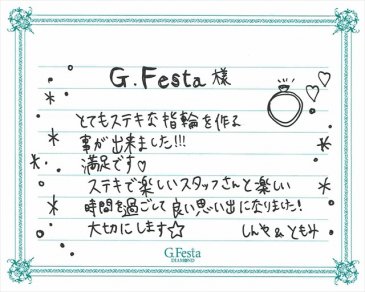 G.Festa 様
とてもステキな指輪を作る
事が出来ました!!!
満足です♡
ステキで楽しいスタッフさんと楽しい
時間を過ごして良い思い出になりました!
大切にします☆ しんや&ともみ
G.Festa
DIAMOND